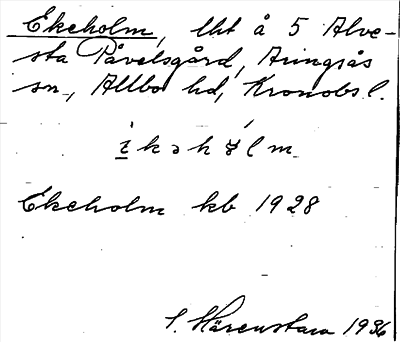 Ekeholm, lht å 5 Alve-
sta Påvelsgård, Aringsås
sn, Allbo hd, Kronobs l.
Ekeholm kb 1928
1936